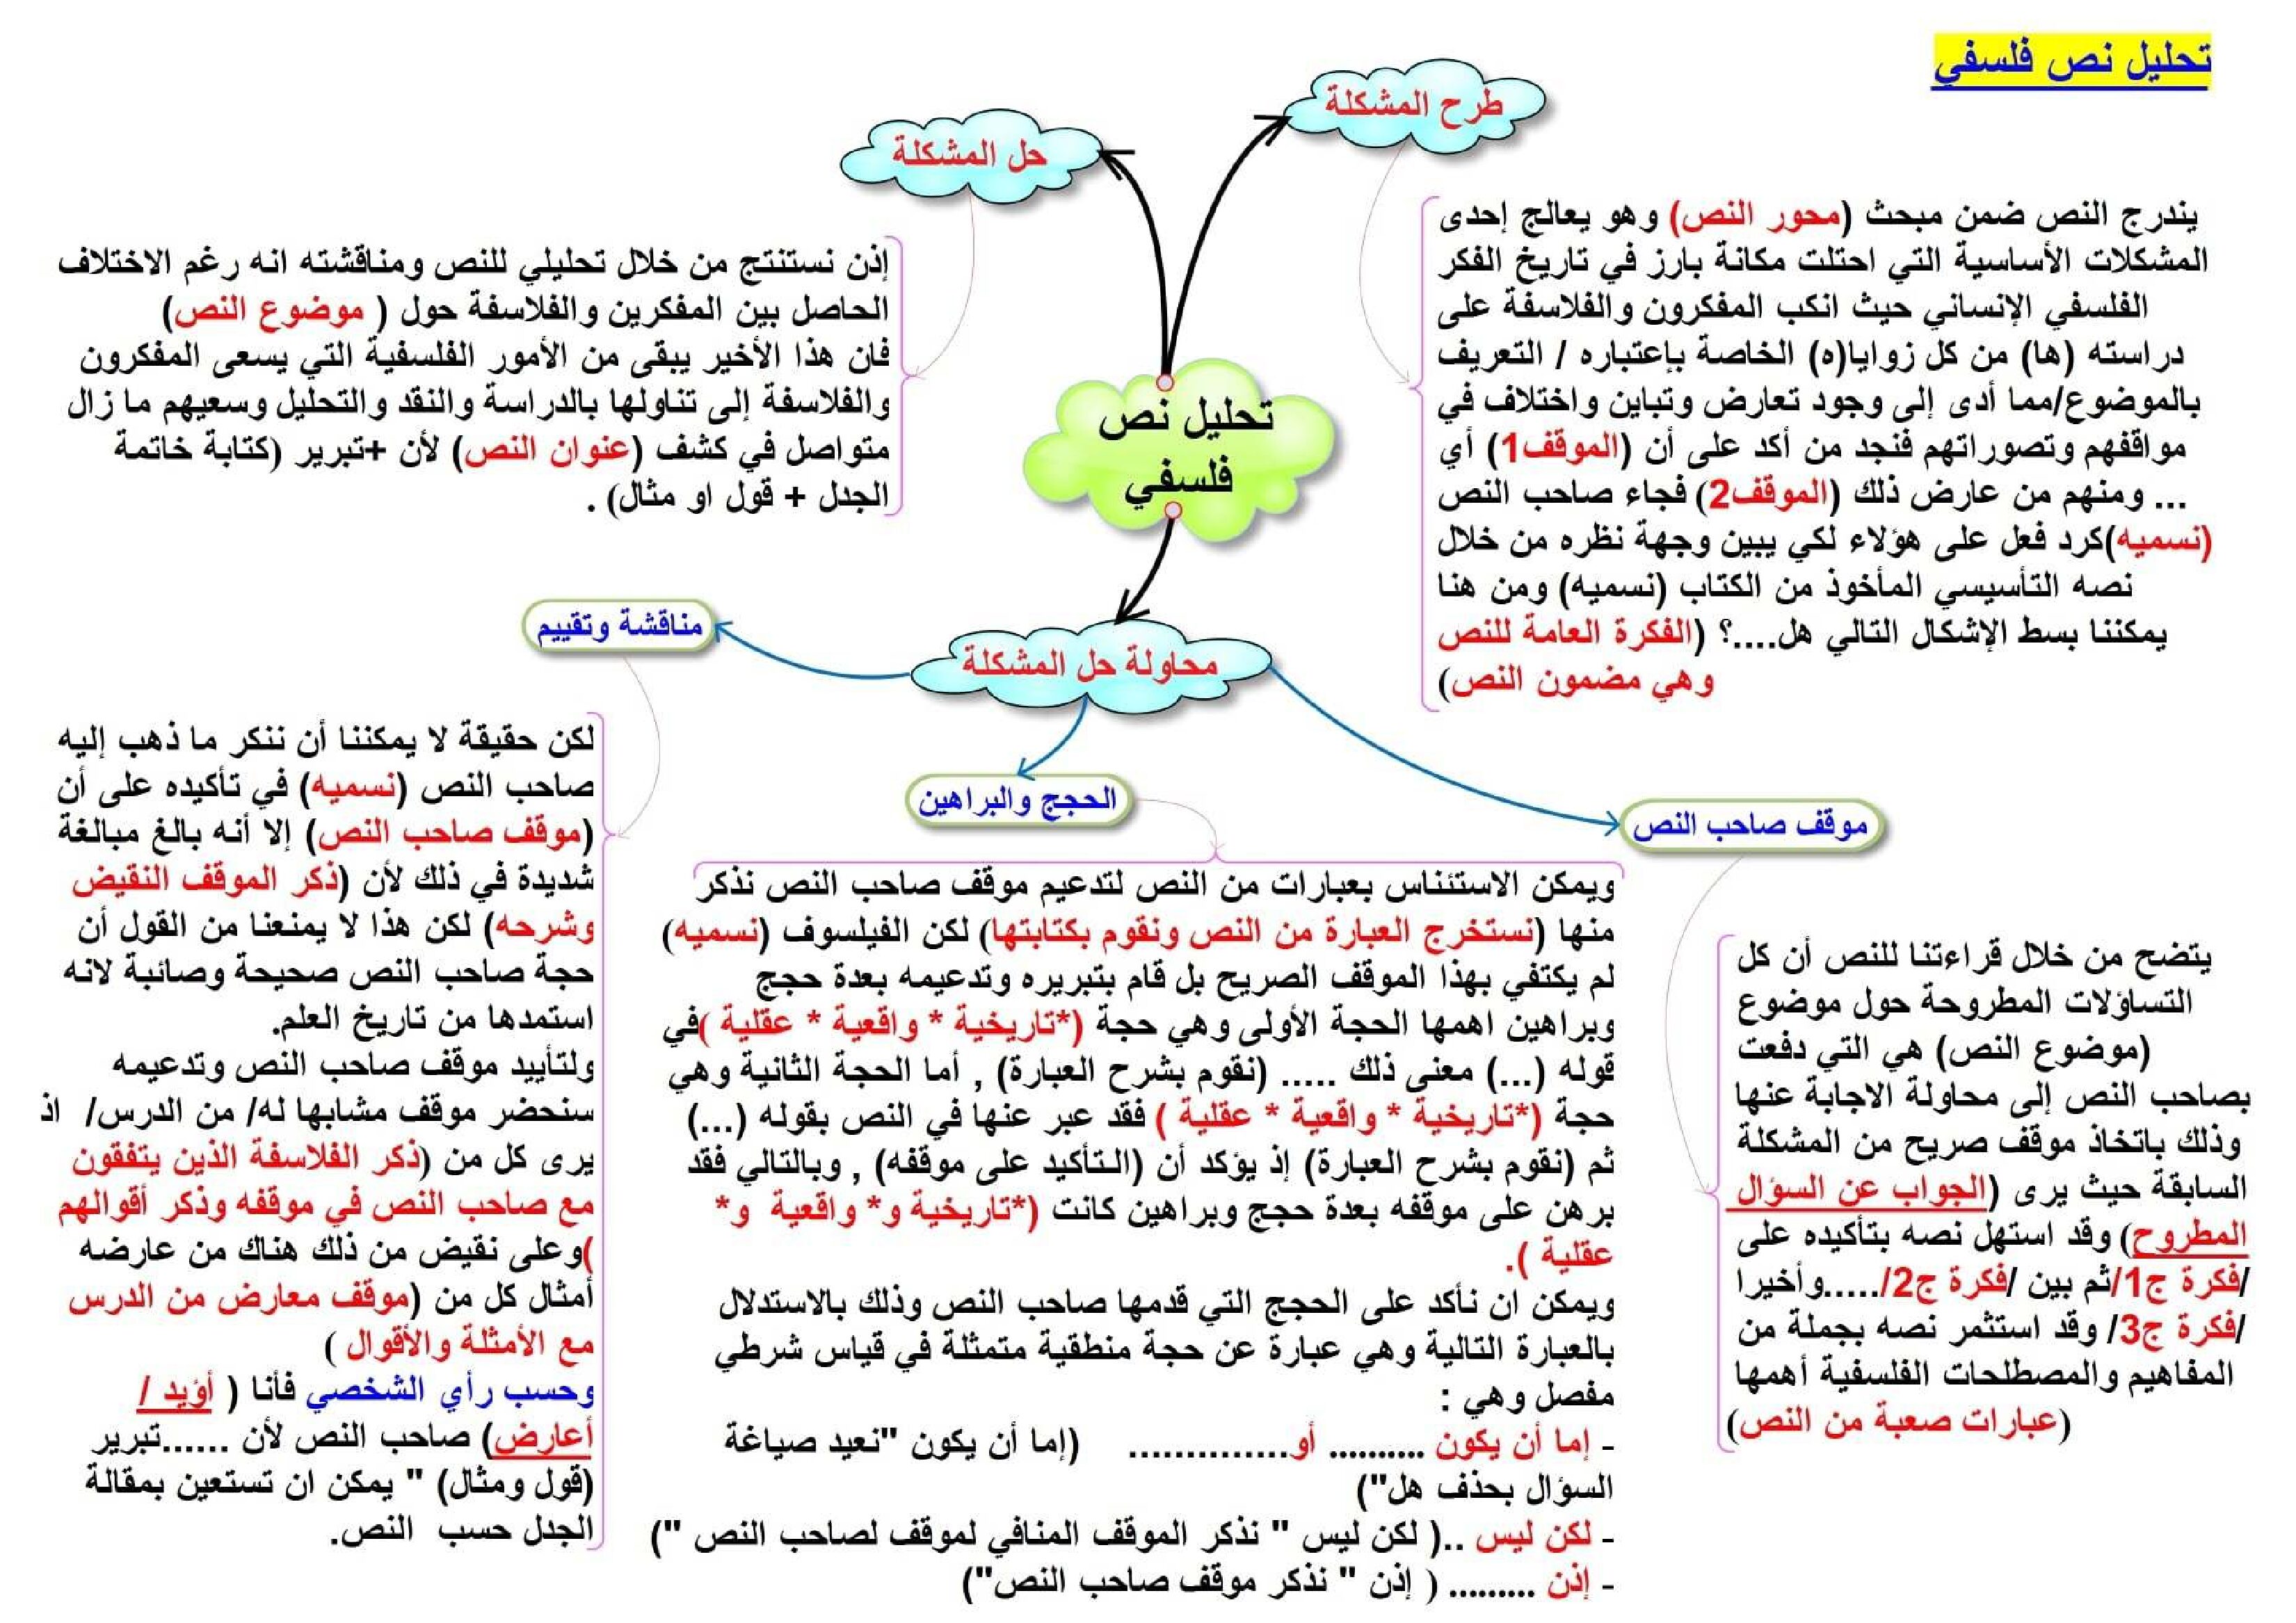 تحليل نص فلسفي
طرح المشكلة
يندرج النص ضمن مبحث (محور النص) وهو يعالج إحدى
المشكلات الأساسية التي احتلت مكانة بارز في تاريخ الفكر
الفلسفي الإنساني حيث انكب المفكرون والفلاسفة على
دراسته (ها) من كل زوايا(ه) الخاصة بإعتباره / التعريف
بالموضوع/مما أدى إلى وجود تعارض وتباين واختلاف في
مواقفهم وتصوراتهم فنجد من أكد على أن (الموقف1) أي
... ومنهم من عارض ذلك (الموقف2) فجاء صاحب النص
(نسميه)كرد فعل على هؤلاء لكي يبين وجهة نظره من خلال
نصه التأسيسي المأخوذ من الكتاب (نسميه) ومن هنا
يمكننا بسط الإشكال التالي هل....؟ (الفكرة العامة للنص
وهي مضمون النص)
حل المشكلة
إذن نستنتج من خلال تحليلي للنص ومناقشته انه رغم الاختلاف
الحاصل بين المفكرين والفلاسفة حول ( موضوع النص)
فان هذا الأخير يبقى من الأمور الفلسفية التي يسعى المفكرون
والفلاسفة إلى تناولها بالدراسة والنقد والتحليل وسعيهم ما زال
متواصل في كشف (عنوان النص) لأن +تبرير (كتابة خاتمة
الجدل + قول او مثال) .
تحليل نص
فلسفي
محاولة حل المشكلة
موقف صاحب النص
يتضح من خلال قراءتنا للنص أن كل
التساؤلات المطروحة حول موضوع
(موضوع النص) هي التي دفعت
بصاحب النص إلى محاولة الاجابة عنها
وذلك باتخاذ موقف صريح من المشكلة
السابقة حيث يرى (الجواب عن السؤال
المطروح) وقد استهل نصه بتأكيده على
/فكرة ج1/ثم بين /فكرة ج2/.....وأخيرا
/فكرة ج3/ وقد استثمر نصه بجملة من
المفاهيم والمصطلحات الفلسفية أهمها
(عبارات صعبة من النص)
الحجج والبراهين
ويمكن الاستئناس بعبارات من النص لتدعيم موقف صاحب النص نذكر
منها (نستخرج العبارة من النص ونقوم بكتابتها) لكن الفيلسوف (نسميه)
لم يكتفي بهذا الموقف الصريح بل قام بتبريره وتدعيمه بعدة حجج
وبراهين اهمها الحجة الأولى وهي حجة (*تاريخية * واقعية * عقلية )في
قوله (...) معنى ذلك ..... (نقوم بشرح العبارة) , أما الحجة الثانية وهي
حجة (*تاريخية * واقعية * عقلية ) فقد عبر عنها في النص بقوله (...)
ثم (نقوم بشرح العبارة) إذ يؤكد أن (التأكيد على موقفه) , وبالتالي فقد
برهن على موقفه بعدة حجج وبراهين كانت (*تاريخية و* واقعية و*
عقلية ).
ويمكن ان نأكد على الحجج التي قدمها صاحب النص وذلك بالاستدلال
بالعبارة التالية وهي عبارة عن حجة منطقية متمثلة في قياس شرطي
مفصل وهي :
- إما أن يكون .......... أو.............. (إما أن يكون "نعيد صياغة
السؤال بحذف هل")
- لكن ليس ..( لكن ليس " نذكر الموقف المنافي لموقف لصاحب النص ")
- إذن ......... ( إذن " نذكر موقف صاحب النص")
مناقشة وتقييم
لكن حقيقة لا يمكننا أن ننكر ما ذهب إليه
صاحب النص (نسميه) في تأكيده على أن
(موقف صاحب النص) إلا أنه بالغ مبالغة
شديدة في ذلك لأن (ذكر الموقف النقيض
وشرحه) لكن هذا لا يمنعنا من القول أن
حجة صاحب النص صحيحة وصائبة لانه
استمدها من تاريخ العلم.
ولتأييد موقف صاحب النص وتدعيمه
سنحضر موقف مشابها له/ من الدرس/ اذ
يرى كل من (ذكر الفلاسفة الذين يتفقون
مع صاحب النص في موقفه وذكر أقوالهم
)وعلى نقيض من ذلك هناك من عارضه
أمثال كل من (موقف معارض من الدرس
مع الأمثلة والأقوال )
وحسب رأي الشخصي فأنا ( أؤيد /
أعارض) صاحب النص لأن ......تبرير
(قول ومثال) " يمكن ان تستعين بمقالة
الجدل حسب النص.